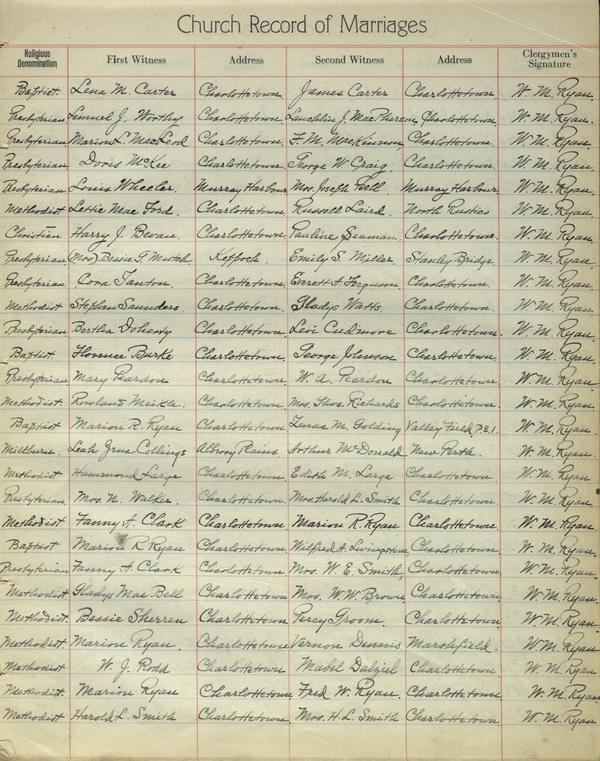 Church Record of Marriages
Religious Denomination First Witness Address Second Witness Address Clergymen's Signature
Baptist. Lena M. Carter Charlottetown. James Carter Charlottetown. W. M. Ryan.
Presbyterian Lemuel J. Worthy Charlottetown. Lauchlin J. MacPherson, Charlottetown. W. M. Ryan.
Presbyterian Marion L. MacLeod Charlottetown. F. M. MacKinnon, Charlottetown. W. M. Ryan.
Presbyterian Doris McKee Charlottetown. George W. Craig, Charlottetown. W. M. Ryan.
Presbyterian Louis Wheeler. Murray Harbour Mrs. Joseph Bell Murray Harbour W. M. Ryan.
Methodist Lettie Mae Ford. Charlottetown. Russell Laird. North Rustico W. M. Ryan.
Christian Harry J. Bevan. Charlottetown. Pauline Seaman. Charlottetown. W. M. Ryan.
Presbyterian (Mrs) Bessie G. Mutch Keppoch. Emily S. Miller. Stanley Bridge W. M. Ryan.
Presbyterian. Cora Tanton. Charlottetown. Everett A. Ferguson. Charlottetown. W. M. Ryan.
Methodist Stephen Saunders. Charlottetown. Gladys Watts. Charlottetown. W. M. Ryan.
Presbyterian. Bertha Doherty Charlottetown. Levi Cudmore Charlottetown. W. M. Ryan.
Baptist. Florence Burke Charlottetown. George Johnson Charlottetown. W. M. Ryan.
Presbyterian Mary Reardon Charlottetown. W. A. Reardon Charlottetown. W. M. Ryan.
Methodist. Rowland Meikle. Charlottetown. Mrs. Thos. Richards Charlottetown. W. M. Ryan.
Baptist Marion R. Ryan Charlottetown Lenas M. Golding Valley Field, P.E.I. W. M. Ryan.
Leah Collings Albany Plains. Arthur McDonald New Perth. W. M. Ryan.
Methodist Hammond Large Charlottetown. Edith M. Large Charlottetown. W. M. Ryan
Presbyterian. Mrs. N. Walker. Charlottetown. Mrs. Harold L. Smith Charlottetown. W. M. Ryan.
Methodist Fanny A. Clark Charlottetown Marion R. Ryan Charlottetown W. M. Ryan.
Baptist Marion R Ryan Charlottetown Wilfred A. Livingstone, Charlottetown. W. M. Ryan.
Presbyterian Fanny A. Clark Charlottetown. Mrs. W. E. Smith, Charlottetown W. M. Ryan.
Methodist Gladys Mae Bell Charlottetown Mrs. W. W. Brown, Charlottetown. W. M. Ryan.
Methodist. Bessie Sherren Charlottetown Percy Groom. Charlottetown W. M. Ryan.
Methodist. Marion Ryan. Charlottetown Vernon Dennis Marshfield. W M. Ryan.
Methodist W. J. Rodd Charlottetown Mabel Dalziel Charlottetown W. M. Ryan
Methodist. Marion Ryan Charlottetown Fred W. Ryan. Charlottetown. W. M. Ryan
Methodist Harold L. Smith Charlottetown Mrs. H. L. Smith Charlottetown W. M. Ryan